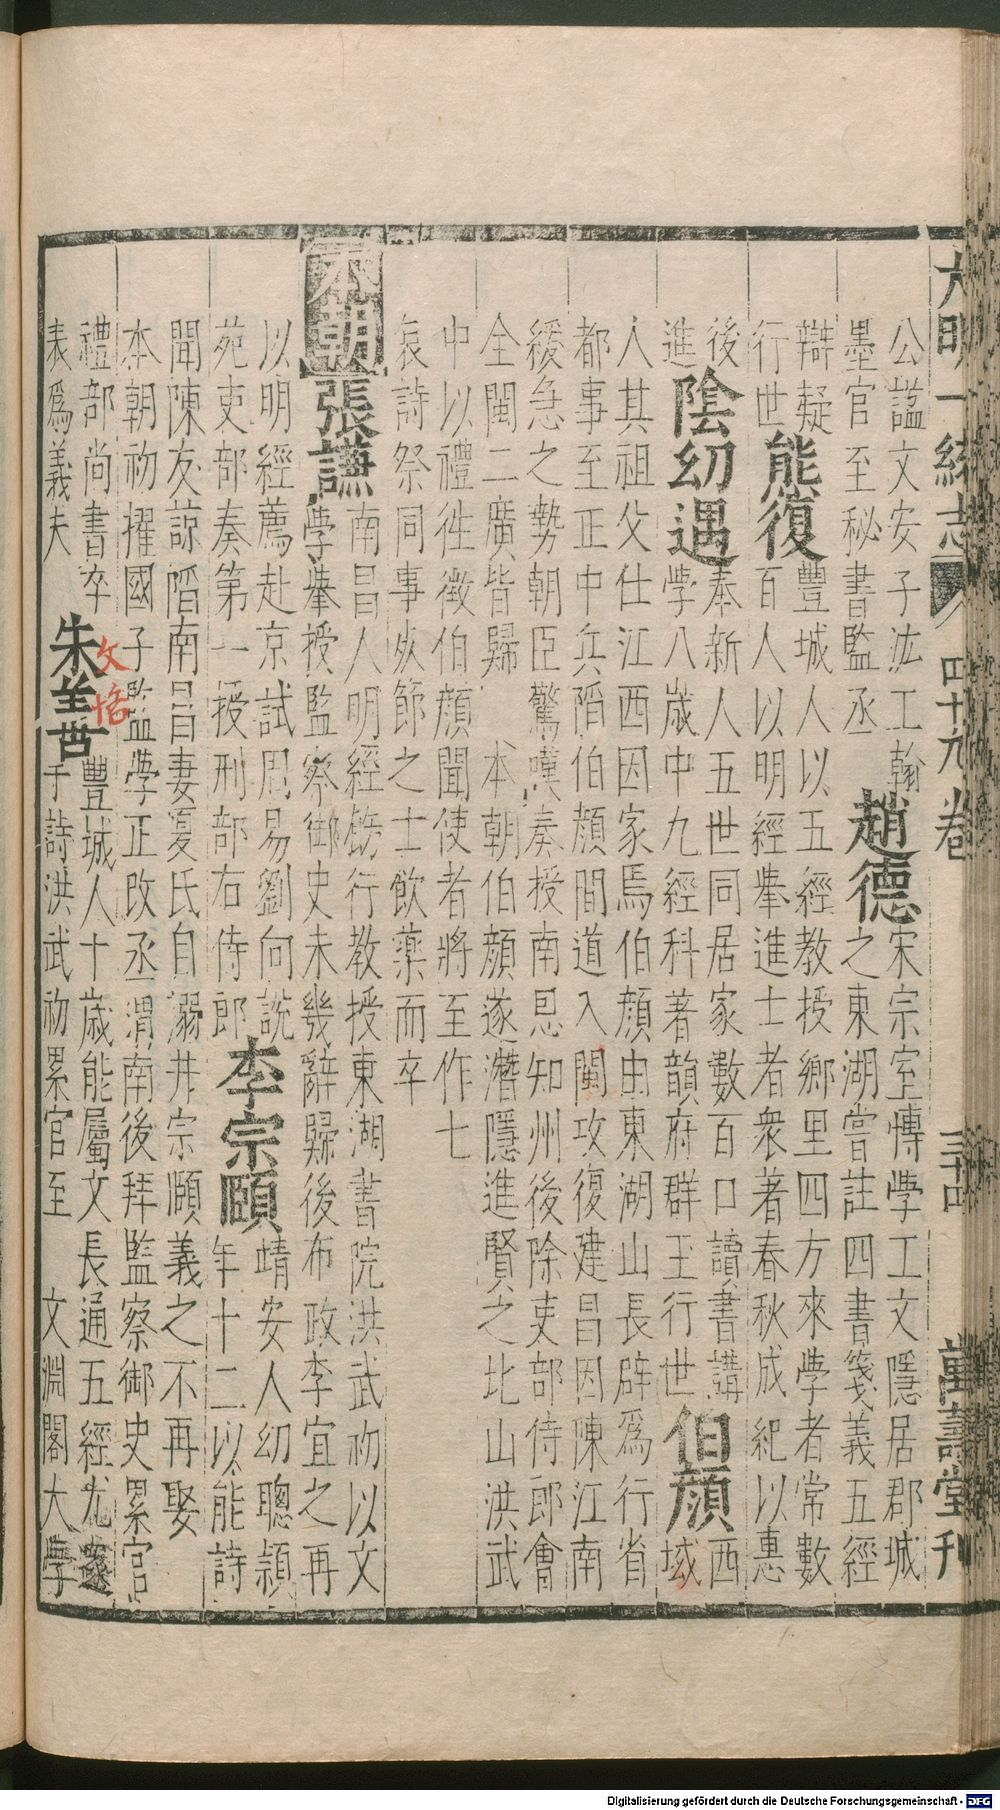 大明一統志 四十九卷 三十四 萬壽堂刊
公諡文安子泫工翰
墨官至秘書監丞 趙德 宋宗室博學工文隱居郡城之東湖嘗註四書箋義五經
辯疑行世 熊復 豐城人以五經教授鄉里四方來學者常數百人以明經舉進士者衆著春秋成紀以惠
後進 陰幼遇 奉新人五世同居家數百口讀書講學八歲中九經科著韻府群玉行世 伯顔 西域
人其祖父仕江西因家焉伯顔由東湖山長辟爲行省
都事至正中兵䧟伯顔間道入閩攻復建昌因陳江南
緩急之勢朝臣驚嘆奏授南恩知州後除吏部侍郎會
全閩二廣皆歸 本朝伯顔遂潛隱進賢之北山洪武
中以禮徃徵伯顔聞使者將至作七
哀詩祭同事死節之士飲藥而卒
本朝 張謙 南昌人明經飭行教授東湖書院洪武初以文學舉授監察御史未幾辭歸後布政李宜之再
以明經薦赴京試周易劉向說
苑吏部奏第一授刑部右侍郎 李宗頤 靖安人幼聰穎年十二以能詩
聞陳友諒䧟南昌妻夏氏自溺井宗頤義之不再娶
本朝初擢國子監學正改丞渭南後拜監察御史累官
禮部尚書卒 朱善 文恪 豐城人十歲能屬文長通五經尤邃于詩洪武初累官至 文淵閣大學
表爲義夫